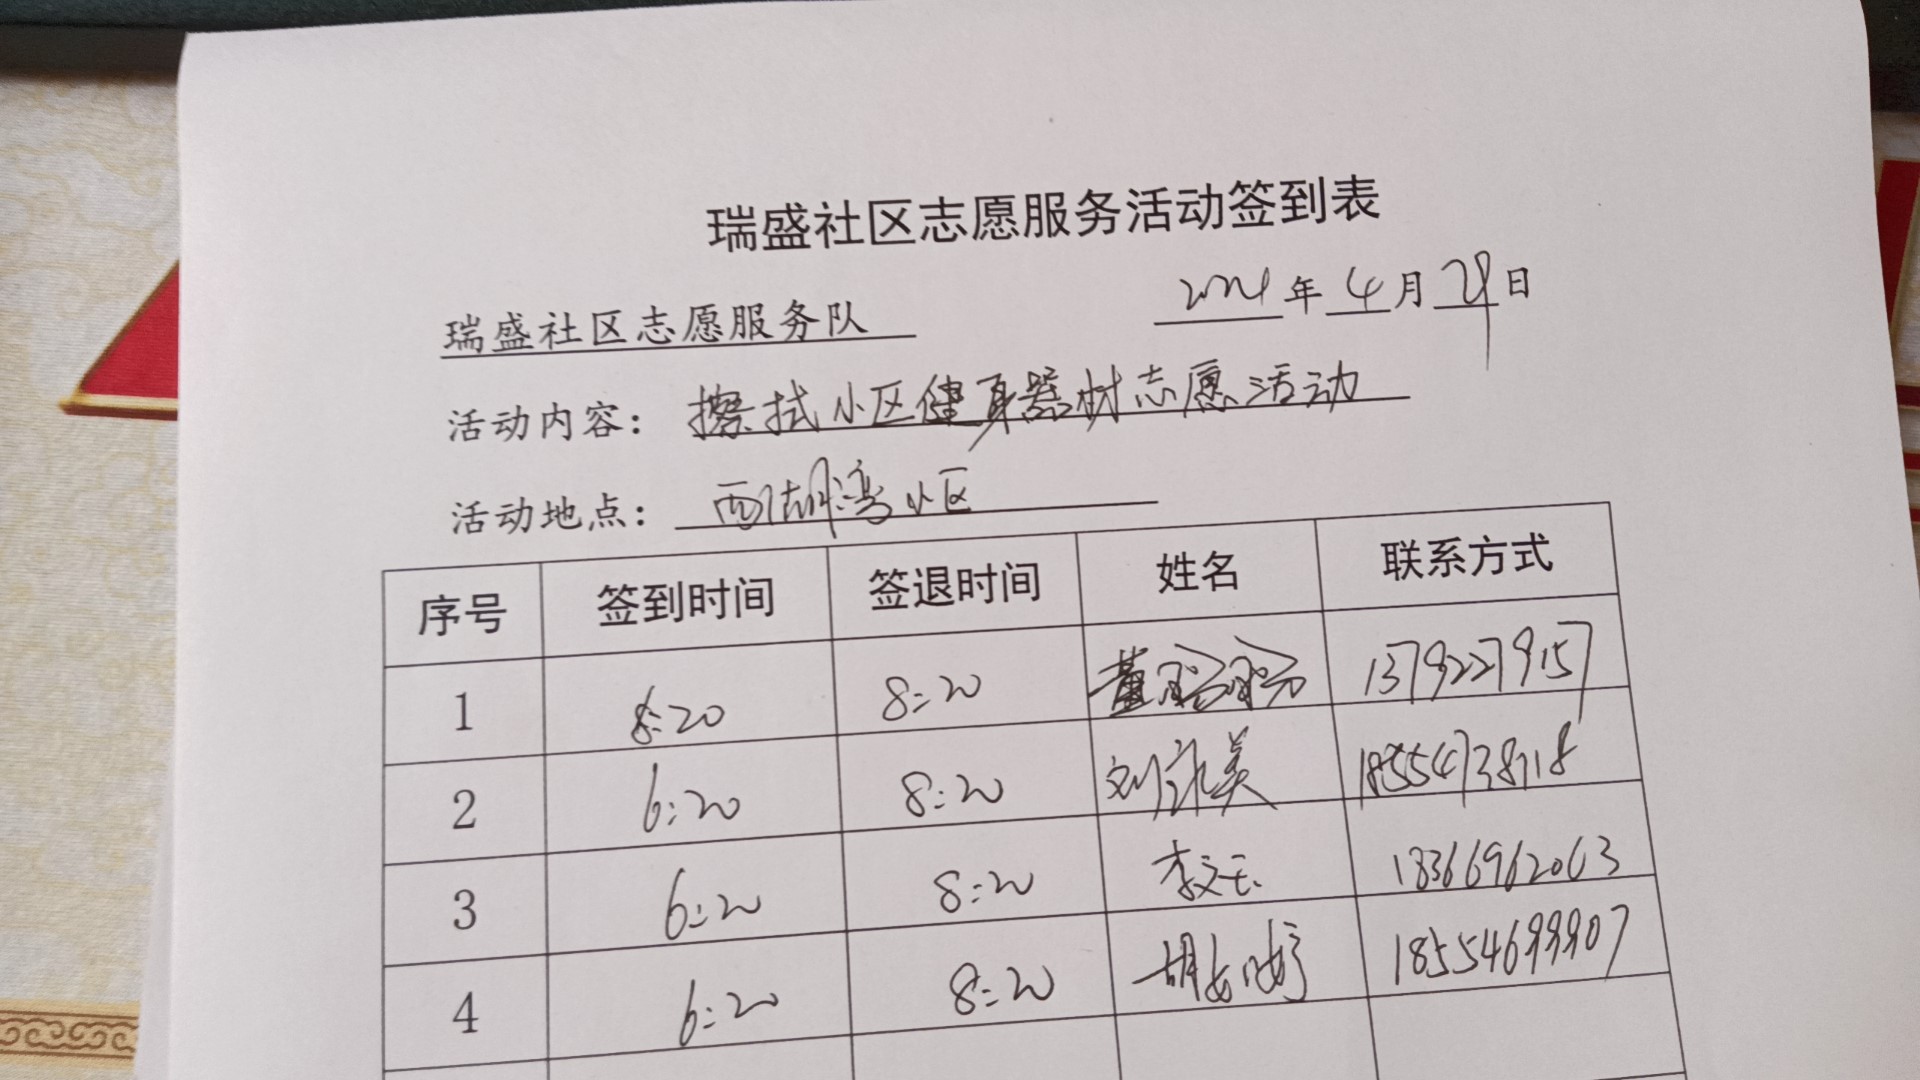 瑞盛社区志愿服务活动签到表
瑞盛社区志愿服务队 年 4 月 日
活动内容： 擦拭小区健身器材志愿活动
活动地点： 西湖湾小区
序号 签到时间 签退时间 姓名 联系方式
1 6:20 8:20 董 13792279157
2 6:20 8:20 刘永美 18554738718
3 6:20 8:20 李文玉 18366962063
4 6:20 8:20 胡 18554699907